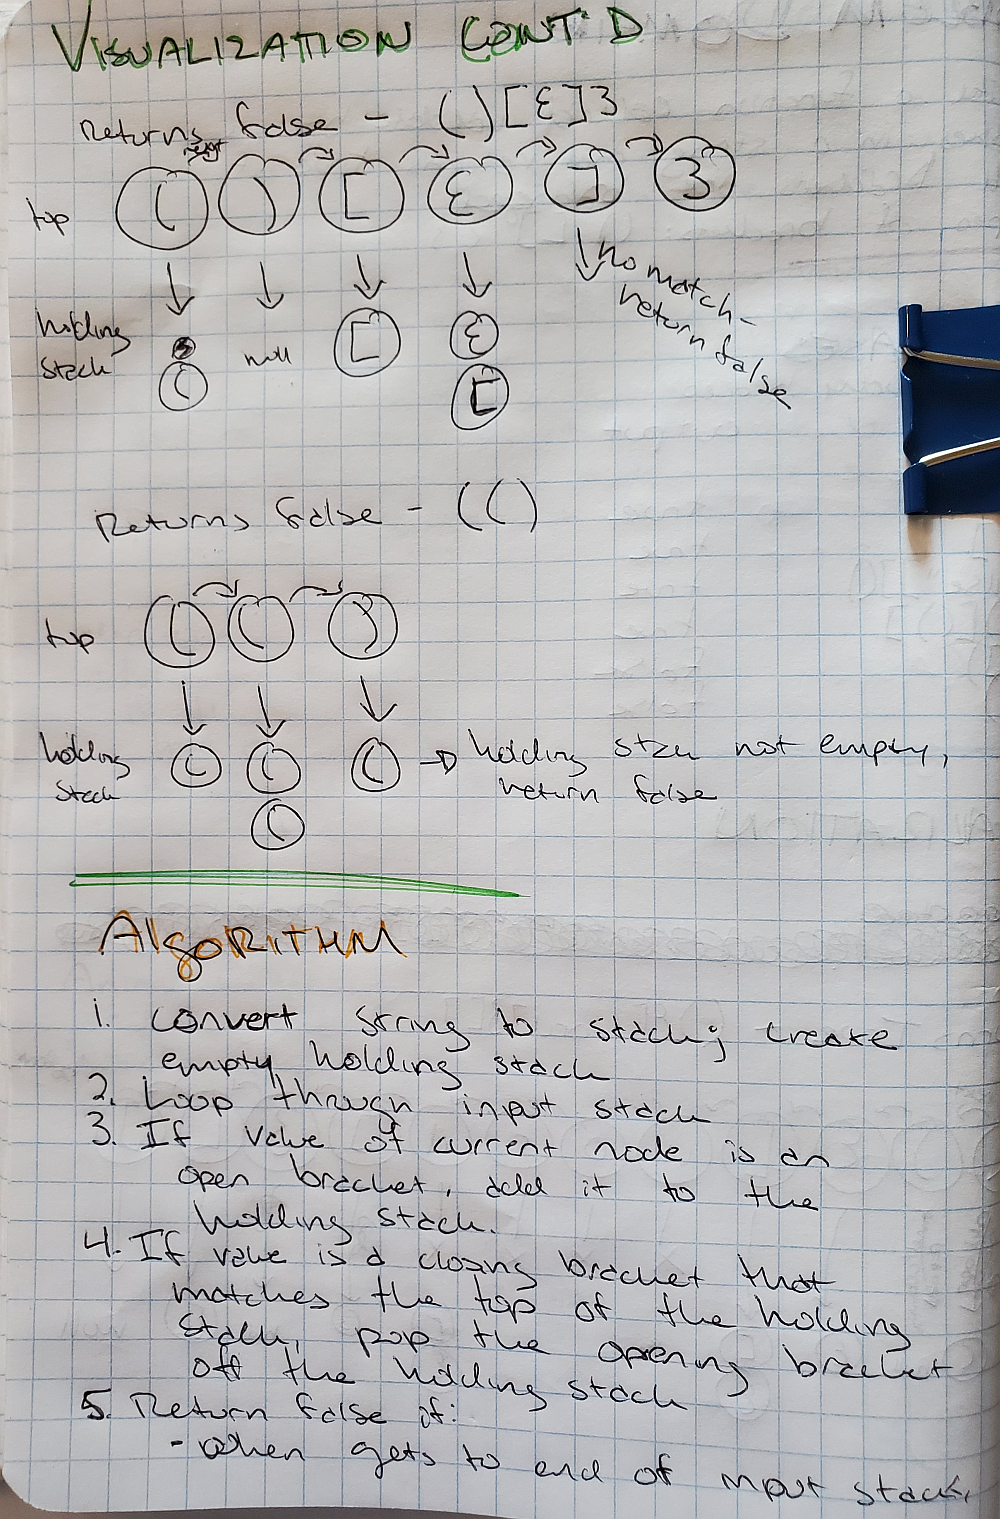 VISUALIZATION CONT'D
Returns false - ( ) [ { ] }
top ( ) [ { ] }
no match -
return false
holding
stack
( null [ { [
Returns false - ( ( )
top ( ( )
holding
stack
( ( ( (
→ holding stack not empty,
return false
ALGORITHM
1. convert string to stack; create
empty holding stack
2. Loop through input stack
3. If value of current node is an
open bracket, add it to the
holding stack.
4. If value is a closing bracket that
matches the top of the holding
stack, pop the opening bracket
off the holding stack
5. Return false if:
- when gets to end of input stack,